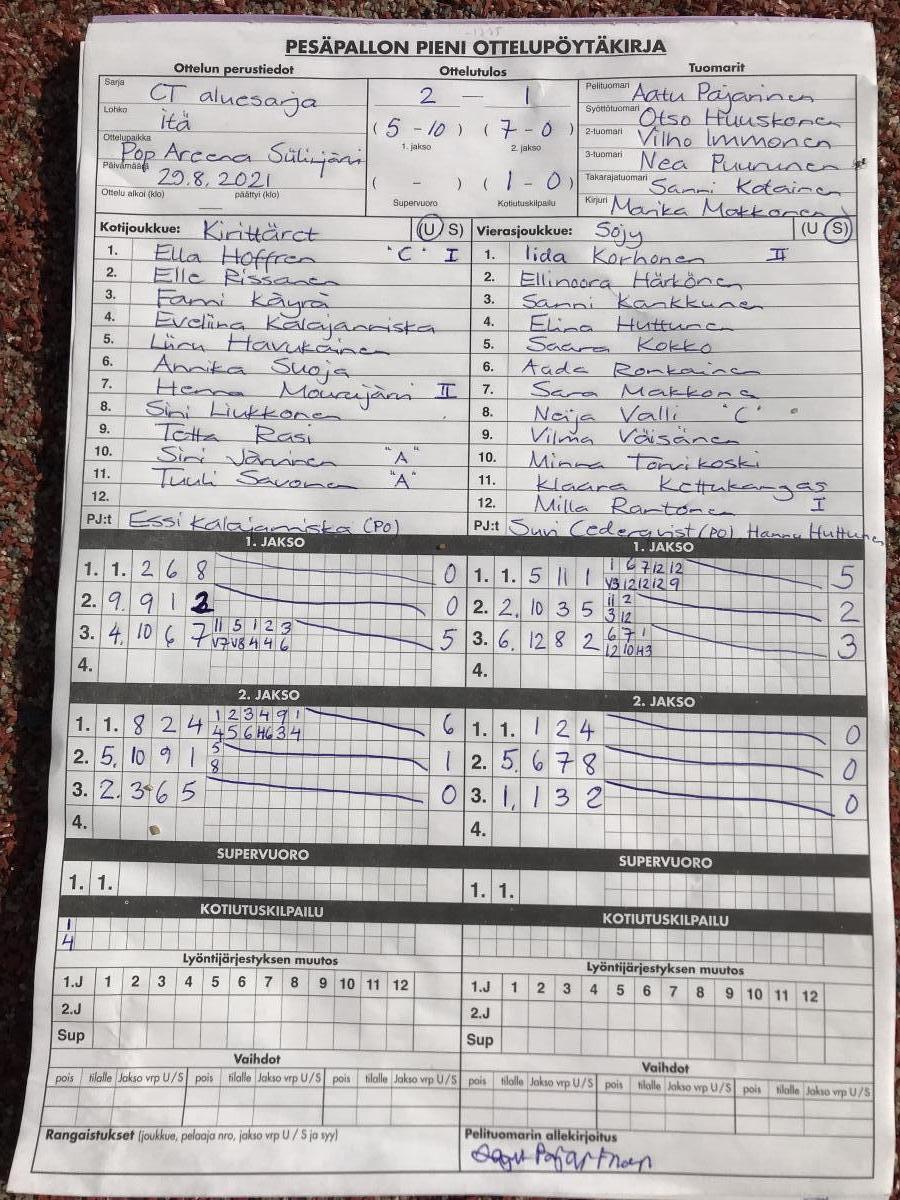 PESÄPALLON PIENI OTTELUPÖYTÄKIRJA
Ottelun perustiedot
Sarja CT aluesarja
Lohko itä
Ottelupaikka Pop Areena Siilinjärvi
Päivämäärä 29.8.2021
Ottelu alkoi (klo) päättyi (klo)
Ottelutulos
2 — 1
(5-10) (7-0)
1. jakso 2. jakso
( - ) (1-0)
Supervuoro Kotiutuskilpailu
Tuomarit
Pelituomari Aatu Pajarinen
Syöttötuomari Otso Huuskonen
2-tuomari Vilho Immonen
3-tuomari Nea Puurunen
Takarajatuomari Sanni Kolainen
Kirjuri Marika Makkonen
Kotijoukkue: Kirittäret (U S)
1. Ella Hoffren "C" I
2. Elle Rissanen
3. Fanni Käyrä
4. Eveliina Kalajanniska
5. Liiru Havukainen
6. Annika Suoja
7. Henna Mourujärvi II
8. Sini Liukkonen
9. Totta Rasi
10. Sini Järvinen "A"
11. Tuuli Savonen "A"
12.
PJ:t Essi Kalajanniska (PO)
Vierasjoukkue: Söjy (U S)
1. Iida Korhonen II
2. Ellinoora Härkönen
3. Sanni Kankkunen
4. Elina Huttunen
5. Saara Kokko
6. Aada Ronkainen
7. Sara Makkone
8. Neija Valli "C"
9. Vilma Väisänen
10. Minna Torvikoski
11. Klaara Kettukangas
12. Milla Rantonen I
PJ:t Suvi Cederqvist (PO) Hannu Huttunen
1. JAKSO
1. 1. 2 6 8 0
2. 9. 9 1 2 0
3. 4. 10 6 7 11 5 1 2 3 5
V7 V8 4 4 6
4.
1. JAKSO
1. 1. 5 11 1 1 6 7 12 12 5
V3 12 12 12 9
2. 2. 10 3 5 11 2 2
3 12
3. 6. 12 8 2 6 7 1 3
12 10 H3
4.
2. JAKSO
1. 1. 8 2 4 1 2 3 4 9 1 6
4 5 6 H6 3 4
2. 5. 10 9 1 5 1
8
3. 2. 3 6 5 0
4.
2. JAKSO
1. 1. 1 2 4 0
2. 5. 6 7 8 0
3. 1. 1 3 2 0
4.
SUPERVUORO
1. 1.
SUPERVUORO
1. 1.
KOTIUTUSKILPAILU
1
4
KOTIUTUSKILPAILU
Lyöntijärjestyksen muutos
1.J 1 2 3 4 5 6 7 8 9 10 11 12
2.J
Sup
Lyöntijärjestyksen muutos
1.J 1 2 3 4 5 6 7 8 9 10 11 12
2.J
Sup
Vaihdot
pois tilalle Jakso vrp U/S pois tilalle Jakso vrp U/S pois tilalle Jakso vrp U/S
Vaihdot
pois tilalle Jakso vrp U/S pois tilalle Jakso vrp U/S pois tilalle Jakso vrp U/S
Rangaistukset (joukkue, pelaaja nro, jakso vrp U / S ja syy)
Pelituomarin allekirjoitus
Aatu Pajarinen